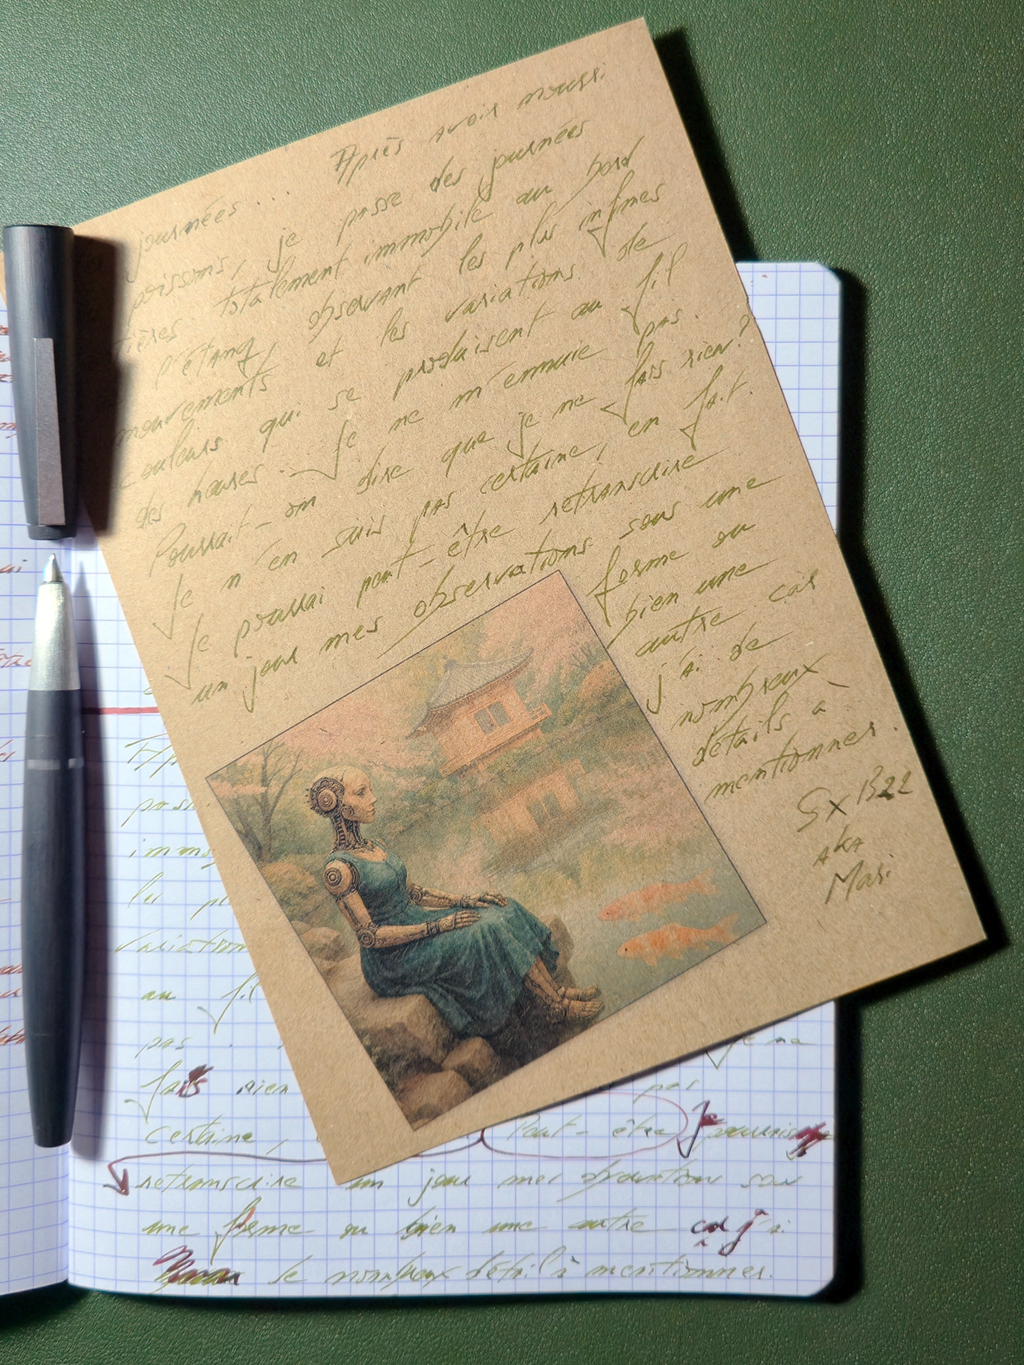 journées... Après avoir nourri
poissons, je passe des journées
ières totalement immobile au bord
l'étang, observant les plus infimes
mouvements et les variations de
couleurs qui se produisent au fil
des heures... Je ne m'ennuie pas.
Pourrait-on dire que je ne fais rien?
Je n'en suis pas certaine, en fait.
Je pourrai peut-être retranscrire
un jour mes observations sous une
forme ou
bien une
autre car
j'ai de
nombreux
détails à
mentionner.
Sx B22
aka
Mari
variation
au fil
pas. Je ne
fais rien pas
certaine, Peut-être Je pourrais
retranscrire un jour mes observation sous
une forme ou bien une autre car j'ai
de nombreux détail à mentionner.